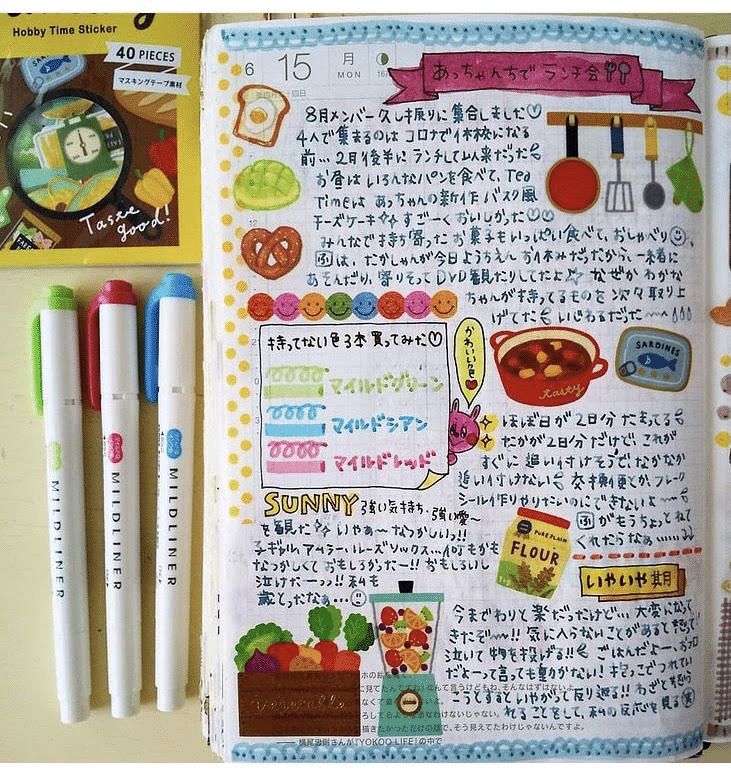 Hobby Time Sticker
40 PIECES
マスキングテープ素材
SARDINES
Taste good!
MILDLINER
MILDLINER
MILDLINER
6 15 月
MON
あっちゃんちで ランチ会
8月メンバー久し振りに集合しました♡
4人で集まるのは コロナで本格になる
前… 2月後半にランチして以来だった
お昼は いろんなパンを食べて、Tea
Timeは あっちゃんの新作 バスク風
チーズケーキ すごーくおいしかった♡♡
みんなで持ち寄ったお菓子もいっぱい食べて、おしゃべり
は、たかしゃんが今日ようちえんお休みだったから、一緒に
あそんだり、寄りそってDVD観たりしてたよ☆ なぜか わかな
ちゃんが持ってるものを次々取り上
げてた いじわるだった〜〜
持ってない色3本買ってみた♡
かわいい色♥
マイルドグリーン
マイルドシアン
マイルドレッド
tasty
SARDINES
ほぼ日が2日分 たまってる
たかが2日分だけで、これが
すぐに 追い付けそうで、なかなか
追い付けない 交換便とか、フレーク
シール作りやりたいのにできないよ〜
がもうちょっとねて
くれたらなぁ……
SUNNY 強い気持ち・強い愛〜
を観た いやぁ〜 なつかしいっ!!
子ギャル アムラー・ルーズソックス…何もかも
なつかしくて おもしろかったー!! おもしろいし
泣けたーっっ!! 私も
歳とったなぁ…
PURE PLAIN
FLOUR
いやいや期
今までわりと楽だったけど… 大変になって
きたぞ〜!! 気に入らないことがあると怒って
泣いて物を投げる!! ごはんだよー、おフロ
だよーって言っても動かない! 抱っこでつれてい
こうとするといやがって反り返る!! わざと怒ら
れることをして、私の反応を見る
Vegetable
そう見えてたわけじゃないんですよ。
── 横尾忠則さんが『YOKOO LIFE』の中で